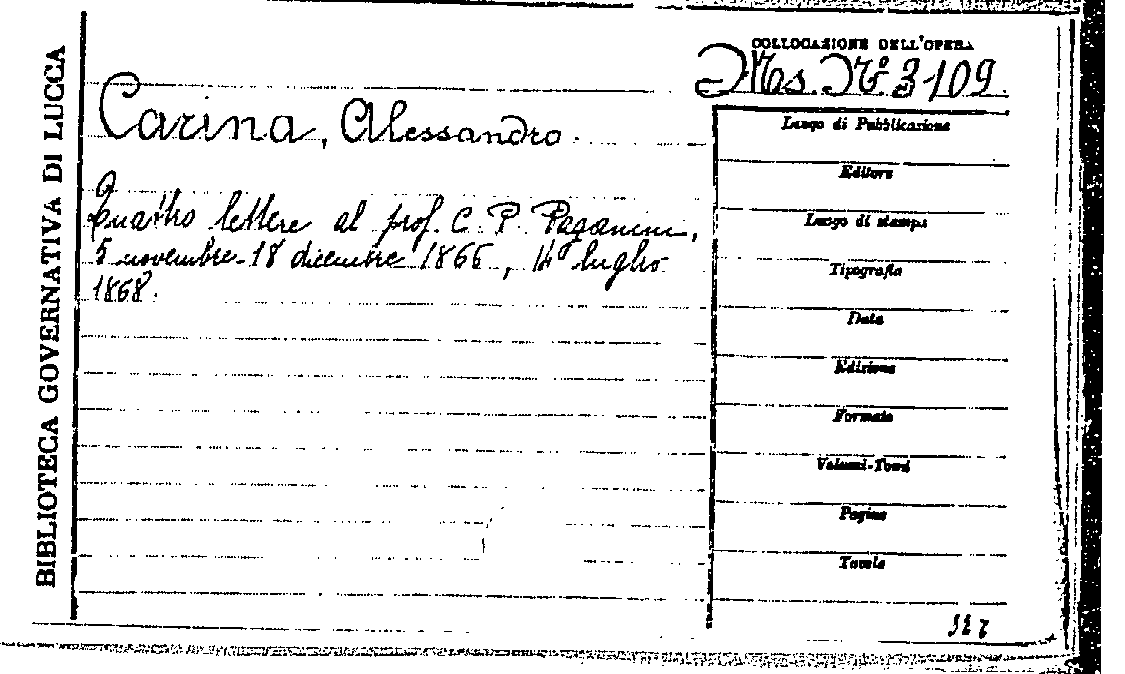 BIBLIOTECA GOVERNATIVA DI LUCCA
COLLOCAZIONE DELL'OPERA
Mss. N.º 3109.
Carina, Alessandro.
Quattro lettere al prof. C. P. Paganini,
5 novembre-18 dicembre 1866, 14 luglio
1868.
Luogo di Pubblicazione
Editore
Luogo di stampa
Tipografia
Data
Edizione
Formato
Volumi-Tomi
Pagine
Tavole